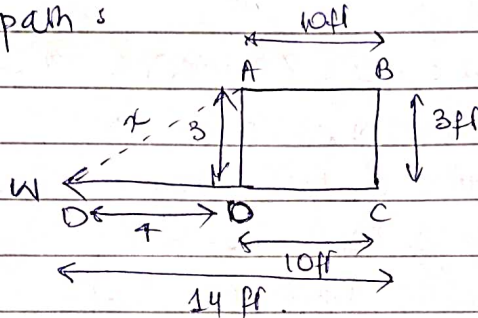 path s
10ft
A B
x 3 3ft
W
D D C
4
10ft
14 ft.